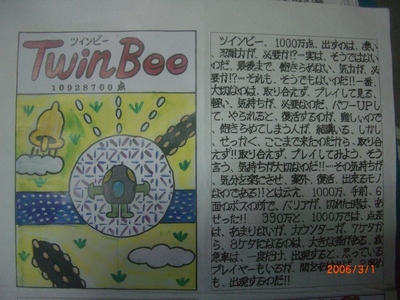 ツインビー
TwinBee
10928700点
ツインビー、1000万点、出すのは、凄い、
忍耐力が、必要か!?…実は、そうではない
のだ。最後まで、飽きらめない、気力が、必
要か!?…それも、そうでもないのだ!!一番、
大切なのは、取り合えず、プレイして見る、
軽い、気持ちが、必要なのだ。パワーUPし
て、やられると、復活するのが、難しいので
飽きらめてしまう人が、結講いる、しかし、
せっかく、ここまで来たのだから、取り合
えず!!取り合えず、プレイしてみよう、そう
言う、気持ちが大切なのだ!!…その気持ちが
気分を楽にさせ、案外、復活、出来るモノ
なのである!!とは云え、1000万、手前、6
面のボスの所で、バリアが、切れた時は、あ
せった!! 990万と、1000万では、点差
は、あまりないが、カウンターが、7ケタから
8ケタになるのは、大きな差がある、救
急車は、一度だけ、出現すると、思っている
プレイヤーもいるが、
出現するのだ!!
2006/3/1